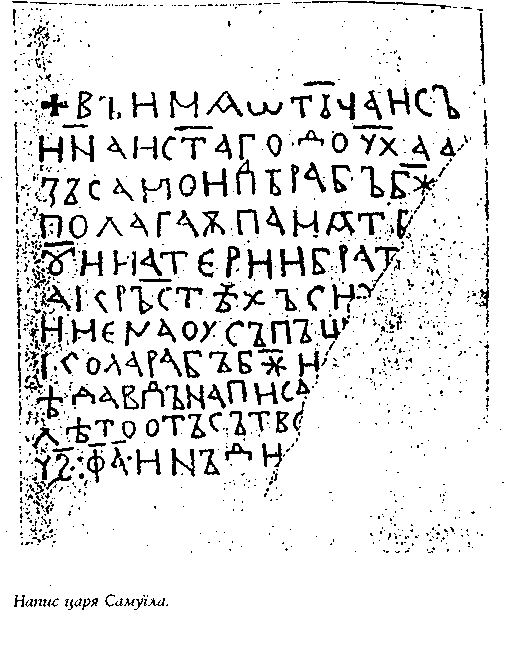 + ВЪ ИМѦ ѠТЬЦА И СЪ
ИН҃А И СТ҃АГО ДОУХА А
ЗЪ САМОИЛЪ РАБЪ БЖ҃
ПОЛАГАѪ ПАМѦТЬ
ОУ И МАТЕРИ И БРАТ
АІ КРЪСТѢХЪ СИ
ИМЕНА ОУСЪПЪШ
ІКОЛА РАБЪ БЖ҃И
Ѣ ДАВДЪ НАПИСА
ЛѢТО ОТЪ СЪТВО
У Ѕ҃ : Ф҃А҃ · ИНЪДИ
Напис царя Самуїла.